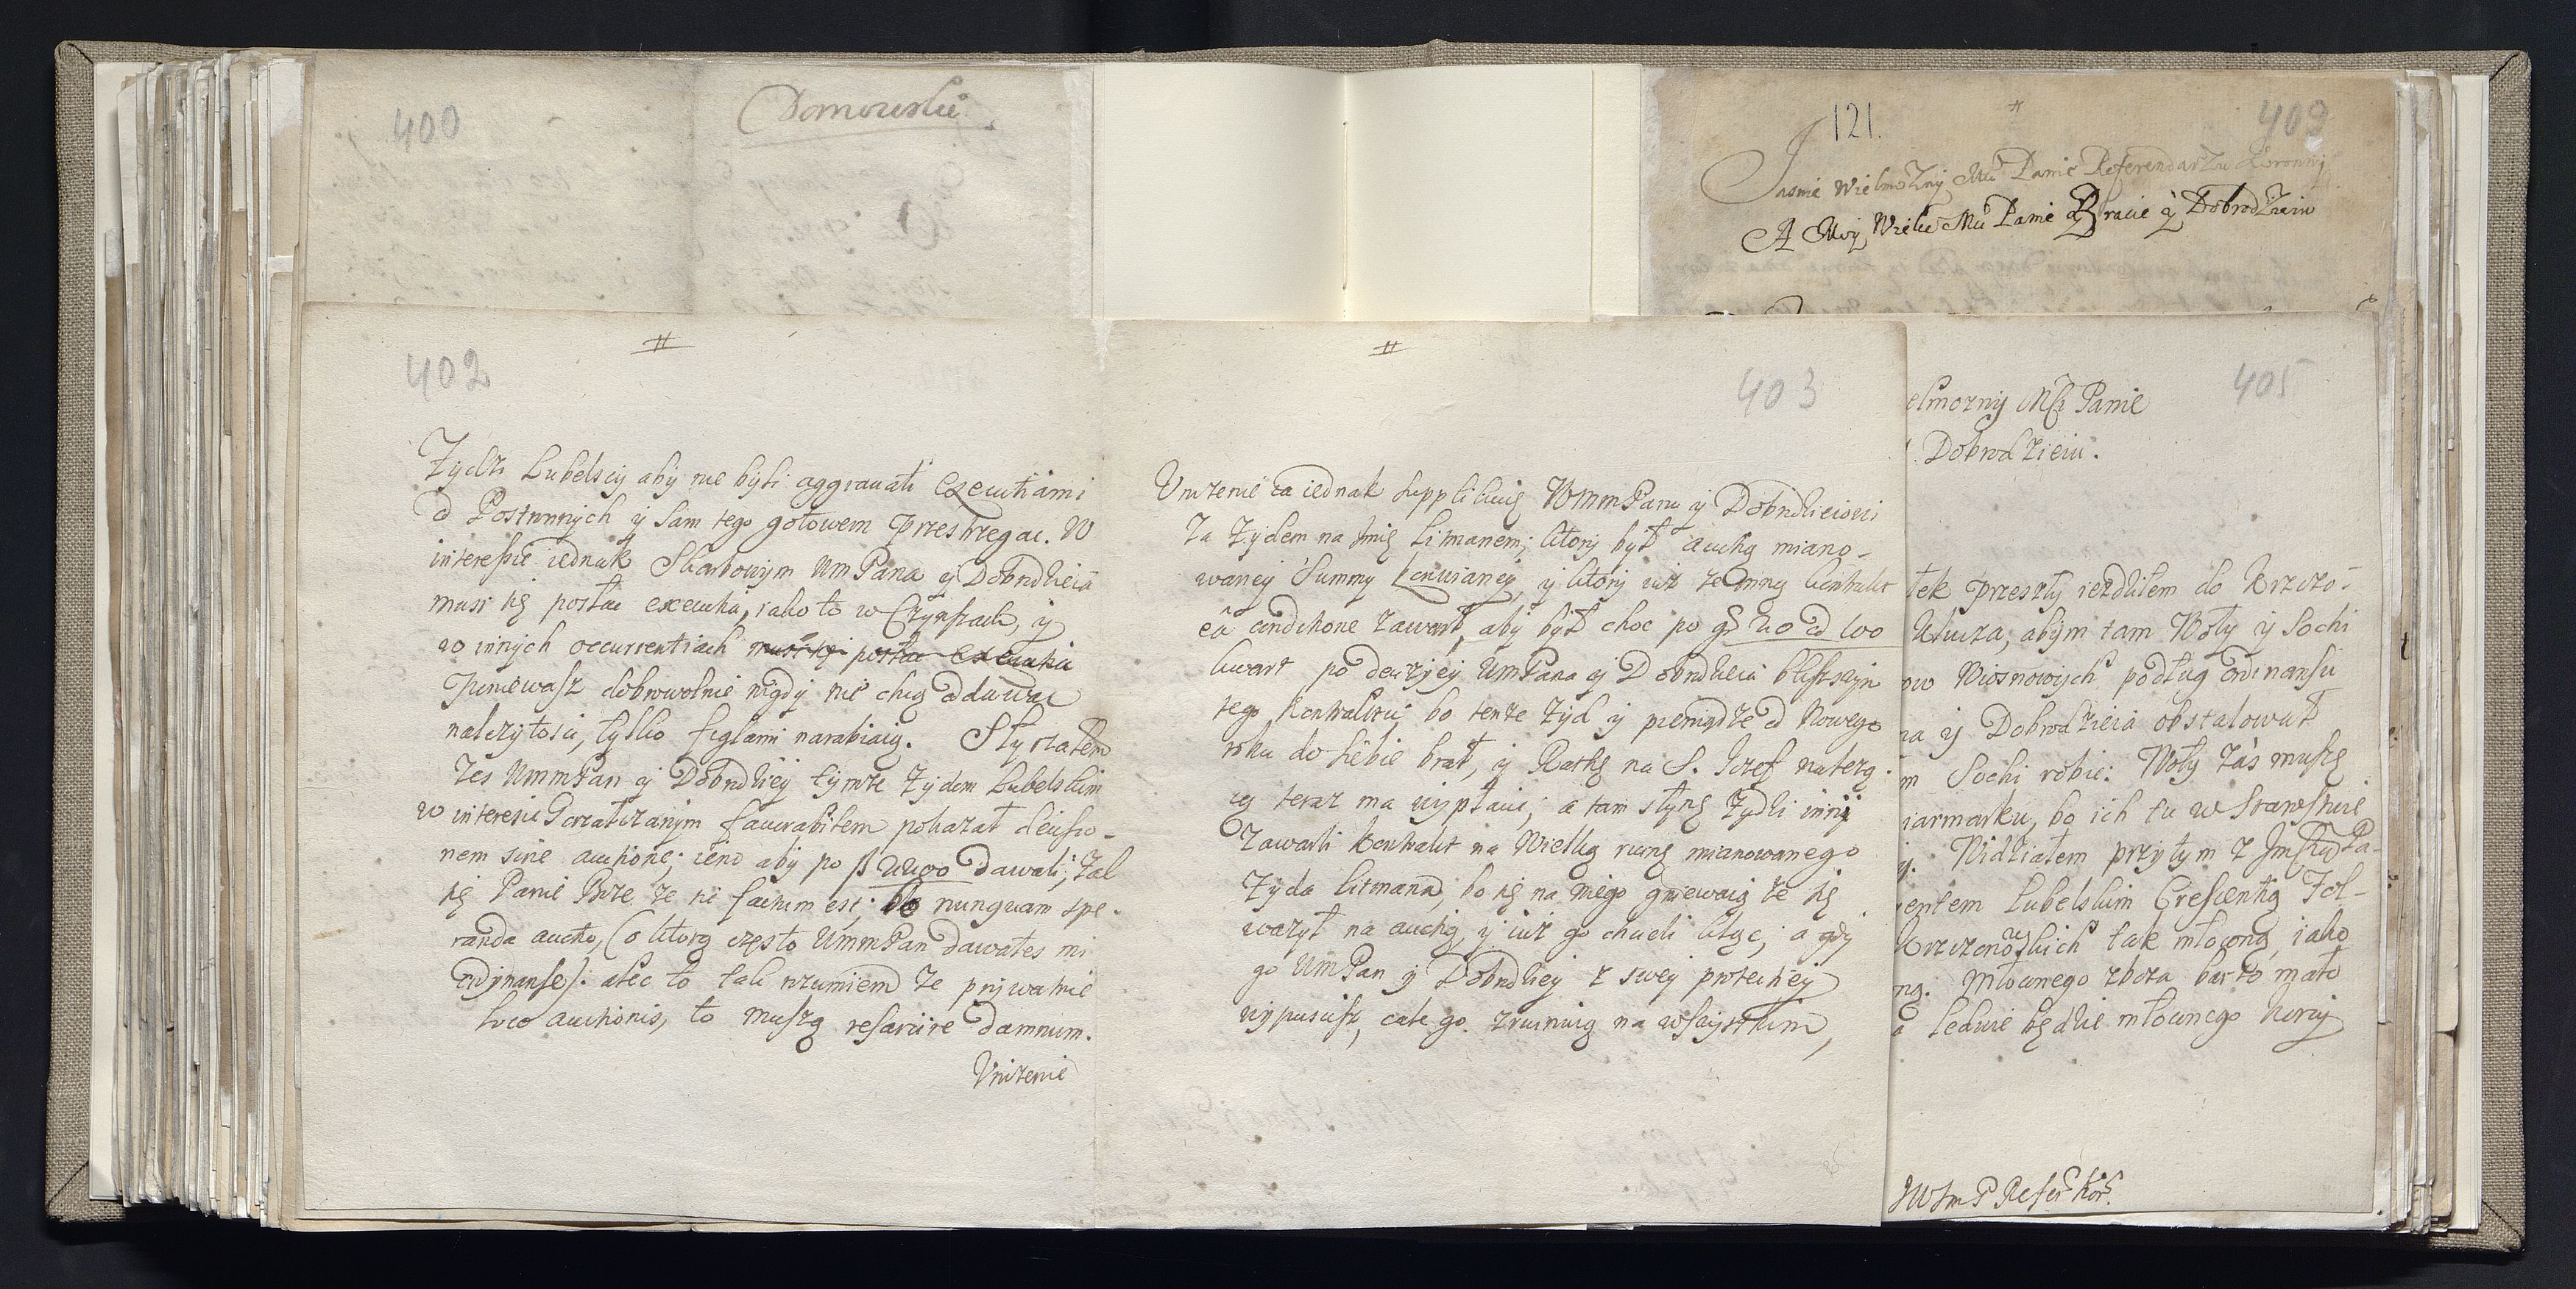 400
Domowskie
121.
409
Jasnie Wielmozny Mci Panie Referendarzu Koronny
A Moy Wielce Mci Panie Bracie y Dobrodzieiu
402
Zydzi Lubelscy aby nie byli aggravati executiami
od Postronnych y sam tego gotowem przestrzegac. W
interessie iednak Skarbowym UmPana y Dobrodzieia
musi się postac executia, iako to w Czynszach, y
w innych occurrentiach musi się postac executia
Poniewasz dobrowolnie nigdy nie chcą oddawac
nalezytosci, tylko figlami narabiaią. Słyszałem
Zes UmmPan y Dobrodziey tymze Zydom Lubelskim
w interesie Gorzałczanym favorabilem pokazał decisio-
nem sine auctione; ieno aby po dawali; Zal
się Panie Boze ze sic factum est; bo nunquam spe-
randa auctio, (o ktorą często UmmPan dawałes mi
ordynanse): alec to tak rozumiem ze prywatnie
loco auctionis, to muszą resarcire damnum.
Unizenie
403
Unizenie ia iednak supplikuię UmmPanu y Dobrodzieiowi
Za Zydem na Imię Litmanem; ktory był auctią miano-
waney Summy y ktory iuz ze mną kontrakt
aby był choc po
kwart po decizyey UmPana y Dobrodzieia bliszszym
tego kontraktu; bo tenze Zyd y pieniądze od Nowego
roku do siebie brał, y Ratę na S. Jozef
teraz ma wypłacic; a tam słyszę Zydzi inni
Zawarli kontrakt na Wielką ruinę mianowanego
Zyda Litmana, bo się na niego gniewaią ze się
wazył na auctią, y iuz go chcieli kląc; a gdy
go UmPan y Dobrodziey z swey protectiey
wypuscisz, cale go zruinuią na wszystkim,
405
elmozny Mci Panie
Dobrodzieiu.
tek przeszły iezdziłem do Krzczo-
Klucza, abym tam Woły y Sochi
ow Wiosnowych podług ordinansu
na y Dobrodzieia obstalował
m Sochi robic: Woły zas muszę
iarmarku, bo ich tu w Starostwie
y. Widziałem przytym z JmPa-
entem Lubelskim Crescentią Fol-
Krzczonowskich tak młocną, iako
ną. Młocnego zboza barzo mało
a ledwie będzie młocnego korcy
JWJm P Refer Kor.